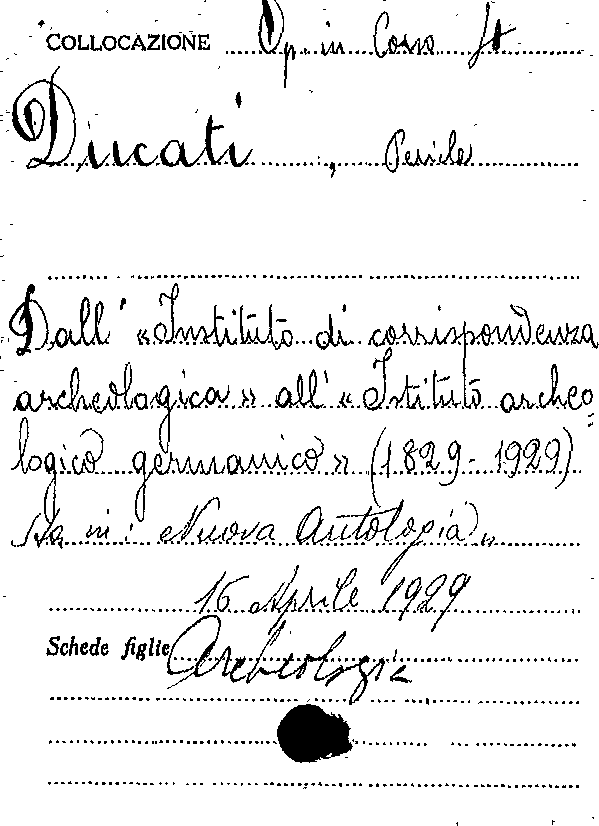 COLLOCAZIONE Op. in Corso St
Ducati, Pericle
Dall' «Instituto di corrispondenza
archeologica» all' «Istituto archeo=
logico germanico» (1829-1929)
Sta in: «Nuova Antologia»
16 Aprile 1929
Schede figlie Archeologia